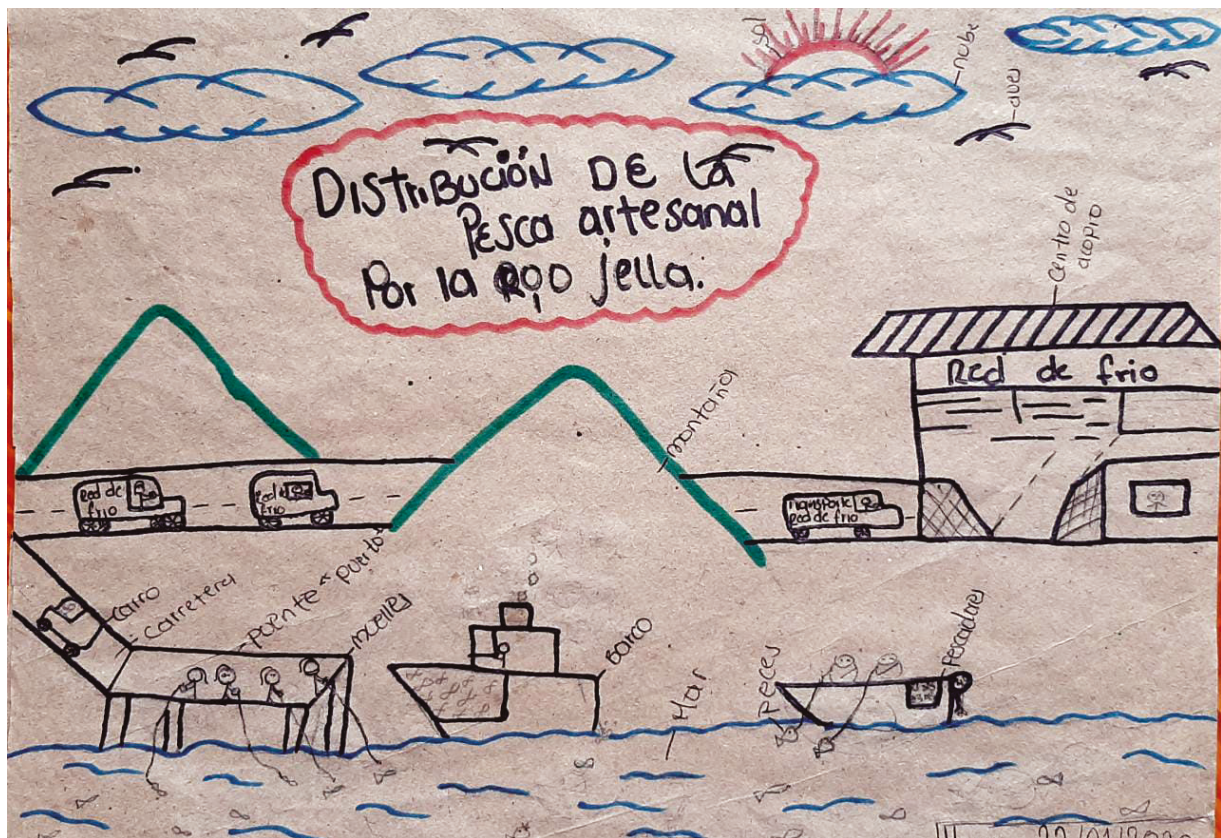 sol
nube
aves
DISTRIBUCIÓN DE LA
PESCA artesanal
Por la ROO jella.
Centro de
acopio
Red de frio
montaña
Red de
frio
Red de
frio
Transporte
Red de frio
carro
carretera
poente "puerto"
muelles
Barco
Mar
Peces
Pescadores